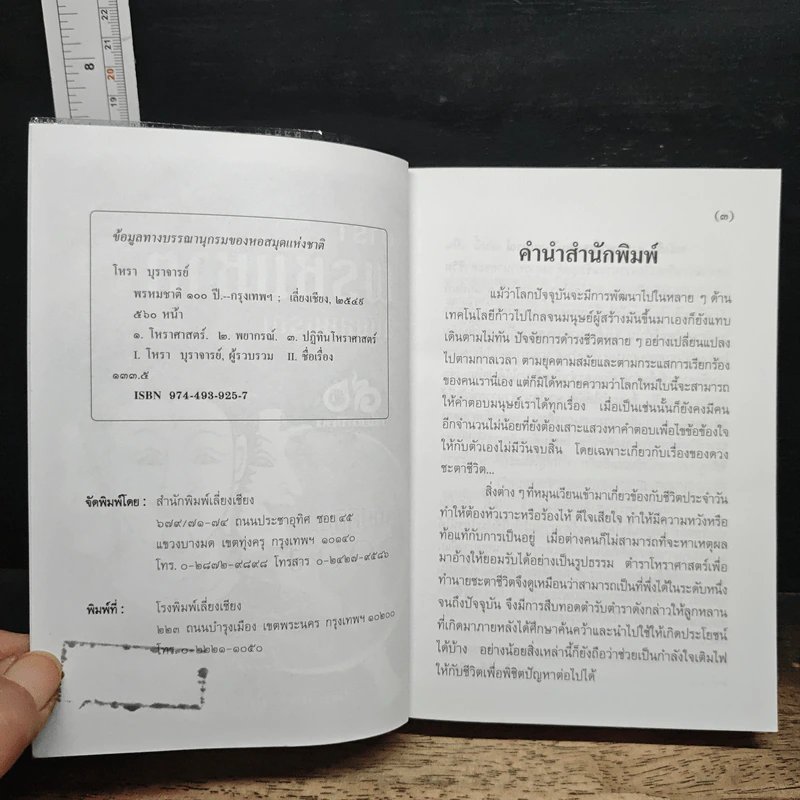 22
21
20
19
8
ข้อมูลทางบรรณานุกรมของหอสมุดแห่งชาติ
โหรา บุราจารย์
พรหมชาติ ๑๐๐ ปี.--กรุงเทพฯ : เลี่ยงเชียง, ๒๕๔๙
๕๖๐ หน้า
๑. โหราศาสตร์. ๒. พยากรณ์. ๓. ปฏิทินโหราศาสตร์
I. โหรา บุราจารย์, ผู้รวบรวม II. ชื่อเรื่อง
๑๓๓.๕
ISBN 974-493-925-7
จัดพิมพ์โดย : สำนักพิมพ์เลี่ยงเชียง
๖๗๙/๗๑-๗๔ ถนนประชาอุทิศ ซอย ๔๕
แขวงบางมด เขตทุ่งครุ กรุงเทพฯ ๑๐๑๔๐
โทร. ๐-๒๘๗๒-๙๘๙๘ โทรสาร ๐-๒๔๒๗-๙๕๘๖
พิมพ์ที่ : โรงพิมพ์เลี่ยงเชียง
๒๒๓ ถนนบำรุงเมือง เขตพระนคร กรุงเทพฯ ๑๐๒๐๐
โทร. ๐-๒๒๒๑-๑๐๕๐
(๓)
คำนำสำนักพิมพ์
แม้ว่าโลกปัจจุบันจะมีการพัฒนาไปในหลาย ๆ ด้าน
เทคโนโลยีก้าวไปไกลจนมนุษย์ผู้สร้างมันขึ้นมาเองก็ยังแทบ
เดินตามไม่ทัน ปัจจัยการดำรงชีวิตหลาย ๆ อย่างเปลี่ยนแปลง
ไปตามกาลเวลา ตามยุคตามสมัยและตามกระแสการเรียกร้อง
ของคนเรานี่เอง แต่ก็มิได้หมายความว่าโลกใหม่ใบนี้จะสามารถ
ให้คำตอบมนุษย์เราได้ทุกเรื่อง เมื่อเป็นเช่นนั้นก็ยังคงมีคน
อีกจำนวนไม่น้อยที่ยังต้องเสาะแสวงหาคำตอบเพื่อไขข้อข้องใจ
ให้กับตัวเองไม่มีวันจบสิ้น โดยเฉพาะเกี่ยวกับเรื่องของดวง
ชะตาชีวิต...
สิ่งต่าง ๆ ที่หมุนเวียนเข้ามาเกี่ยวข้องกับชีวิตประจำวัน
ทำให้ต้องหัวเราะหรือร้องไห้ ดีใจเสียใจ ทำให้มีความหวังหรือ
ท้อแท้กับการเป็นอยู่ เมื่อต่างคนก็ไม่สามารถที่จะหาเหตุผล
มาอ้างให้ยอมรับได้อย่างเป็นรูปธรรม ตำราโหราศาสตร์เพื่อ
ทำนายชะตาชีวิตจึงดูเหมือนว่าสามารถเป็นที่พึ่งได้ในระดับหนึ่ง
จนถึงปัจจุบัน จึงมีการสืบทอดตำรับตำราดังกล่าวให้ลูกหลาน
ที่เกิดมาภายหลังได้ศึกษาค้นคว้าและนำไปใช้ให้เกิดประโยชน์
ได้บ้าง อย่างน้อยสิ่งเหล่านี้ก็ยังถือว่าช่วยเป็นกำลังใจเติมไฟ
ให้กับชีวิตเพื่อพิชิตปัญหาต่อไปได้